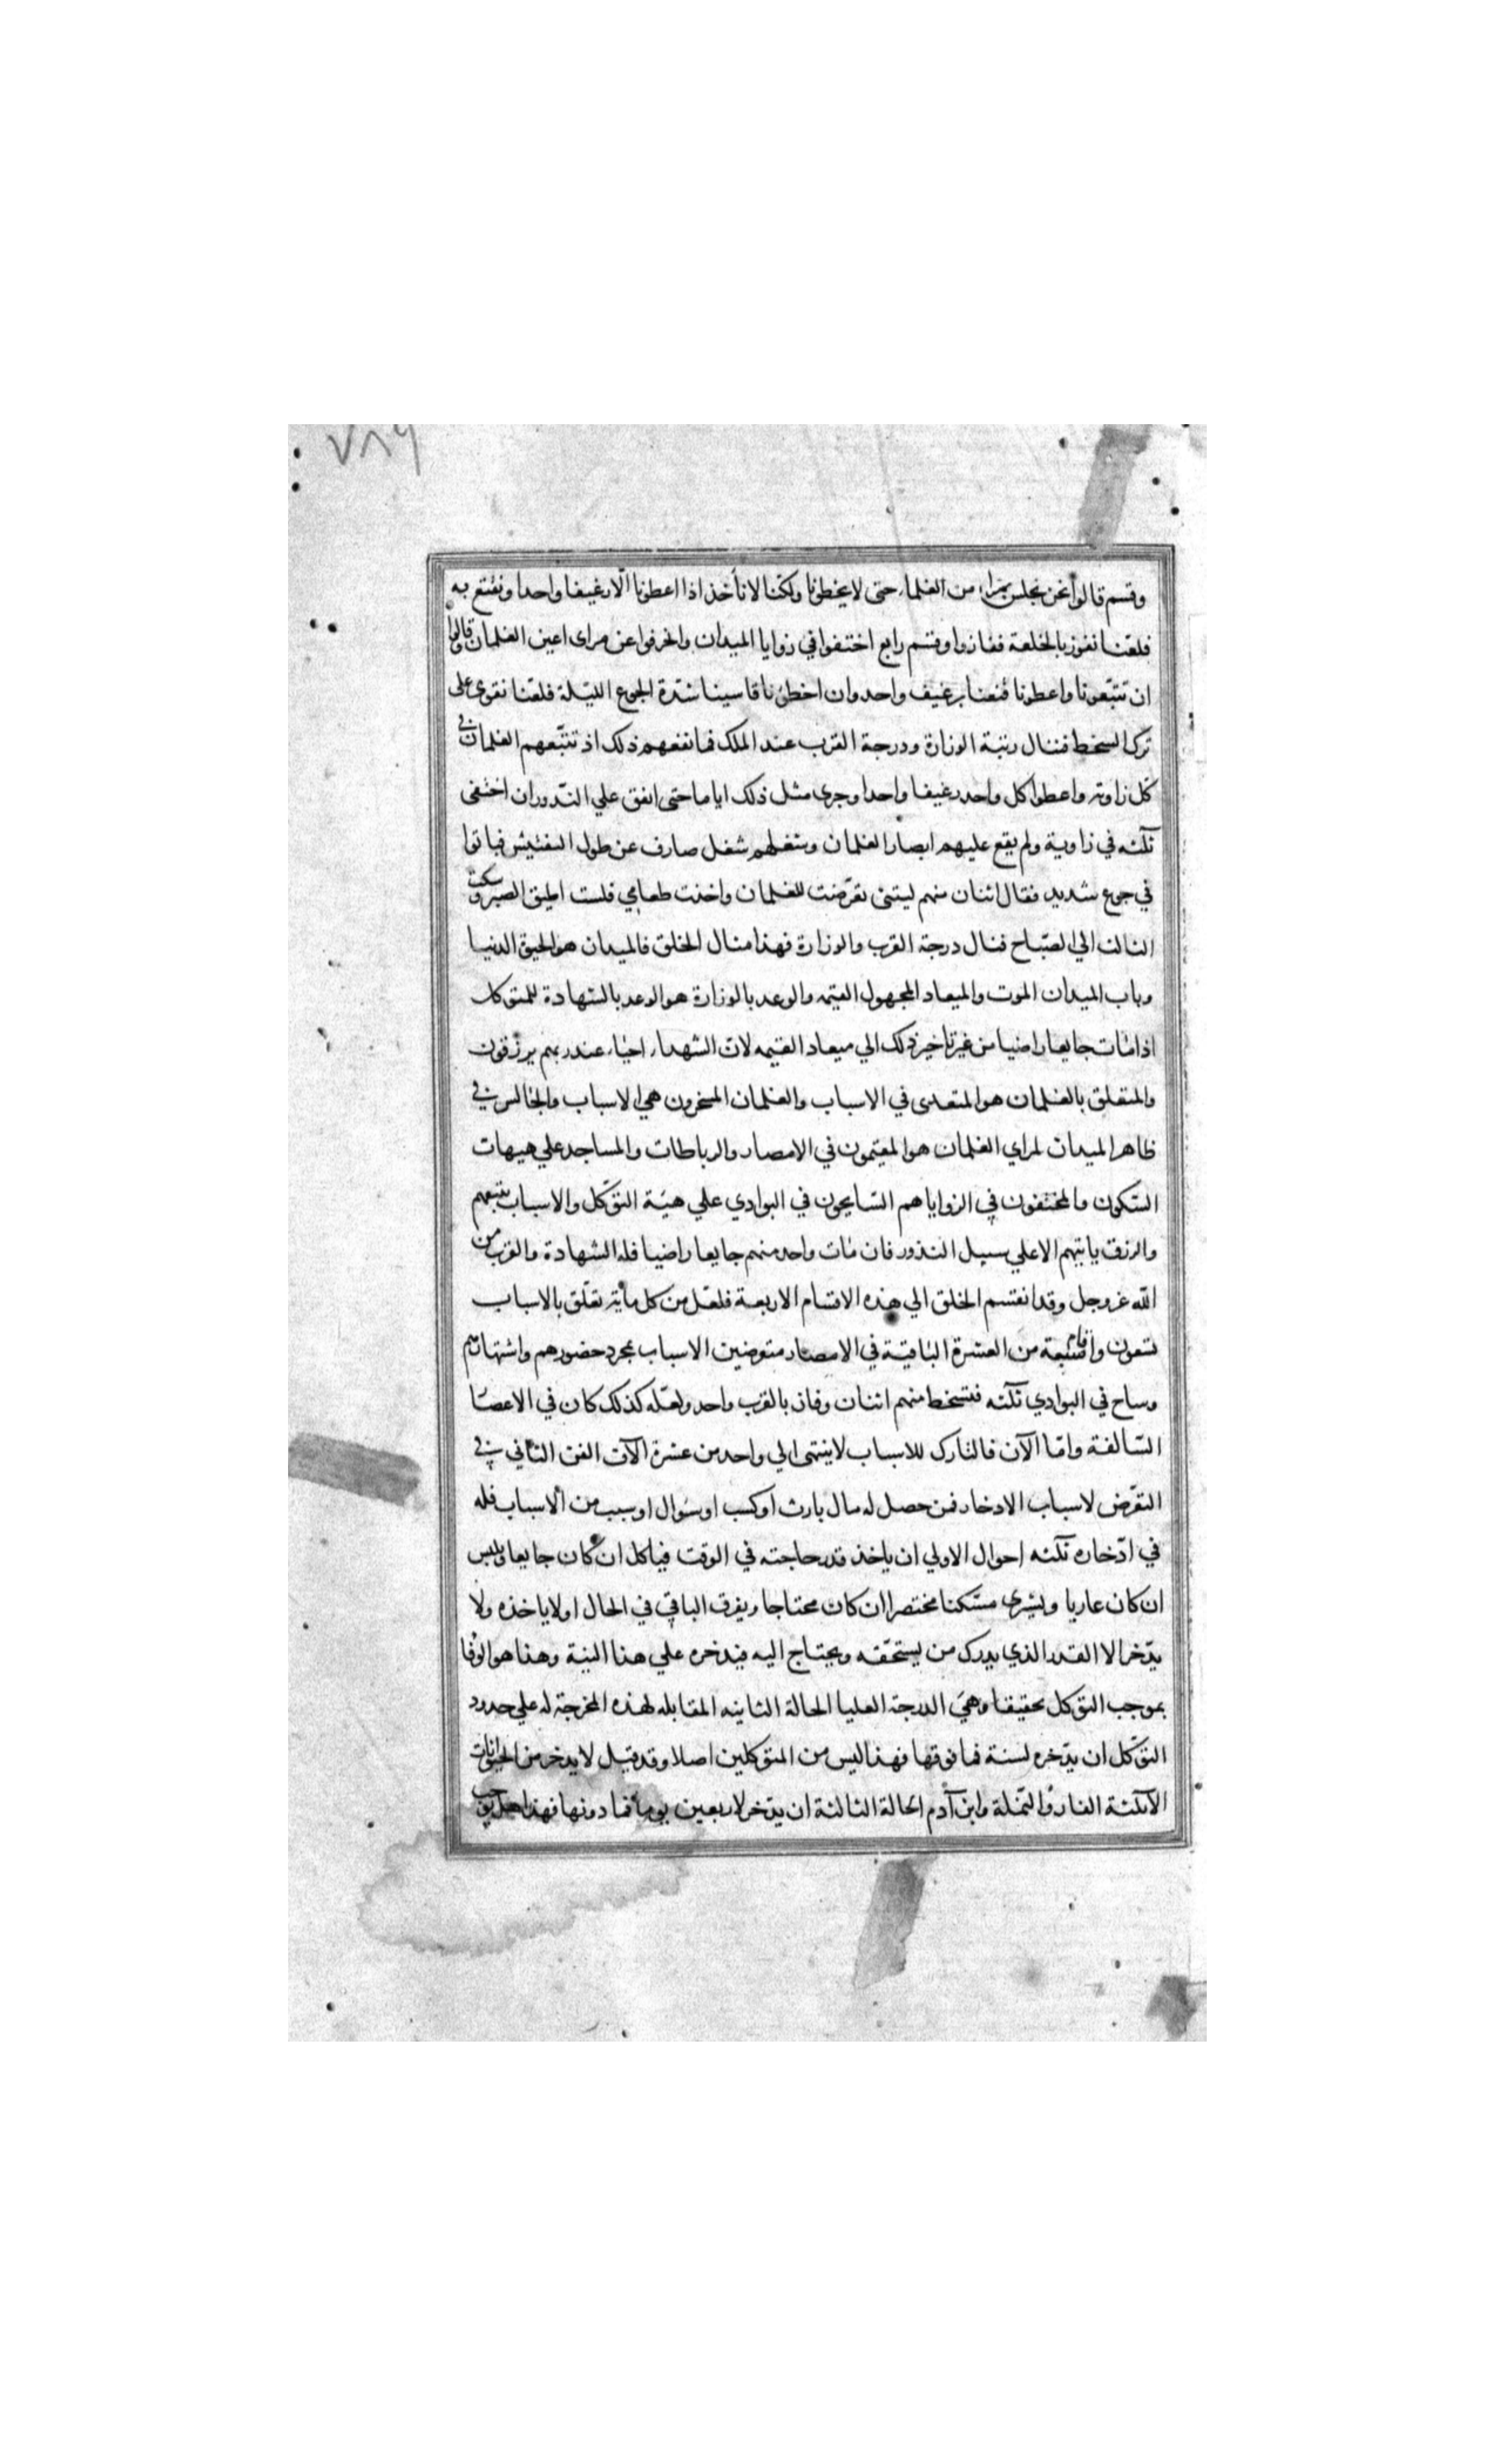 ٧٨٩
وقسم قالوا نحن نجلس بمرأى من الغلمان حتى لا يخطونا ولكنا لا نأخذ اذا اعطونا الّا رغيفا واحدا ونقنع به
فلعلنا نفوز بالخلعة ففازوا وقسم رابع اختفوا في زوايا الميدان وانحرفوا عن مراى اعين الغلمان وقالوا
ان تتبّعونا واعطونا قنعنا برغيف واحد وان اخطونا قاسينا شدّة الجوع الليلة فلعلنا نقوى على
ترك السخط فننال رتبة الوزارة ودرجة القرب عند الملك فما نفعهم ذلك اذ تتبّعهم الغلمان في
كل زاوية واعطوا كل واحد رغيفا واحدا وجرى مثل ذلك اياما حتى اتفق علي النّدور ان اختفى
ثلثه في زاوية ولم يقع عليهم ابصار الغلمان وشغلهم شغل صارف عن طول التفتيش فباتوا
في جوع شديد فقال اثنان منهم ليتنى تعرّضت للغلمان واخذت طعامي فلست اطيق الصبر وسكت
الثالث الي الصّباح فنال درجة القرب والوزارة فهذا مثال الخلق فالميدان هو الحيوة الدنيا
وباب الميدان الموت والميعاد المجهول القيمه والوعد بالوزارة هو الوعد بالشهادة للمتوكل
اذا مات جايعا راضيا من غير تاخير ذلك الي ميعاد القيمه لانّ الشهداء احياء عند ربهم يرزقون
والمتعلق بالغلمان هو المتعدى في الاسباب والغلمان المسخرون هي الاسباب والجالس في
ظاهر الميدان لمراي الغلمان هو المقيمون في الامصار والرباطات والمساجد علي هيهات
السّكون والمختفون في الزوايا هم السّايحون في البوادي علي هيئة التوكّل والاسباب تتبعهم
والرزق ياتيهم الا علي سبيل النذور فان مات واحد منهم جايعا راضيا فله الشهادة والقرب من
الله عز وجل وقد انقسم الخلق الي هذه الاقسام الاربعة فلعل من كل مأية تعلّق بالاسباب
تسعون واقام سبعة من العشرة الباقية في الامصار متعرضين الاسباب بمجرد حضورهم واشتهارهم
وساح في البوادي ثلثه فتسخط منهم اثنان وفاز بالقرب واحد ولعله كذلك كان في الاعصا
السّالفة وامّا الآن فالتارك للاسباب لا ينتهى الي واحد من عشرة آلاف الفن الثاني في
التعرّض لاسباب الادخار فمن حصل له مال بارث او كسب او سؤال او سبب من الاسباب فله
في ادّخاره ثلثه احوال الاولي ان ياخذ قدر حاجته في الوقت فياكل ان كان جايعا ويلبس
ان كان عاريا ويشترى مسكنا مختصرا ان كان محتاجا ويفرق الباقي في الحال او لا ياخذه ولا
يدّخر الا القدر الذي يدرك من يستحقه ويحتاج اليه فيدخره علي هذا النية وهذا هو الوفا
بموجب التوكل تحقيقا وهي الدرجة العليا الحالة الثانيه المقابله لهذه المخرجة له علي حدود
التوكّل ان يدّخره لسنة فما فوقها فهذا ليس من المتوكلين اصلا وقد قيل لا يدخر من الحيوانات
الا ثلثة الفارة والنّملة وابن آدم الحالة الثالثة ان يدّخر لاربعين يوما فما دونها فهذا هل يوجب